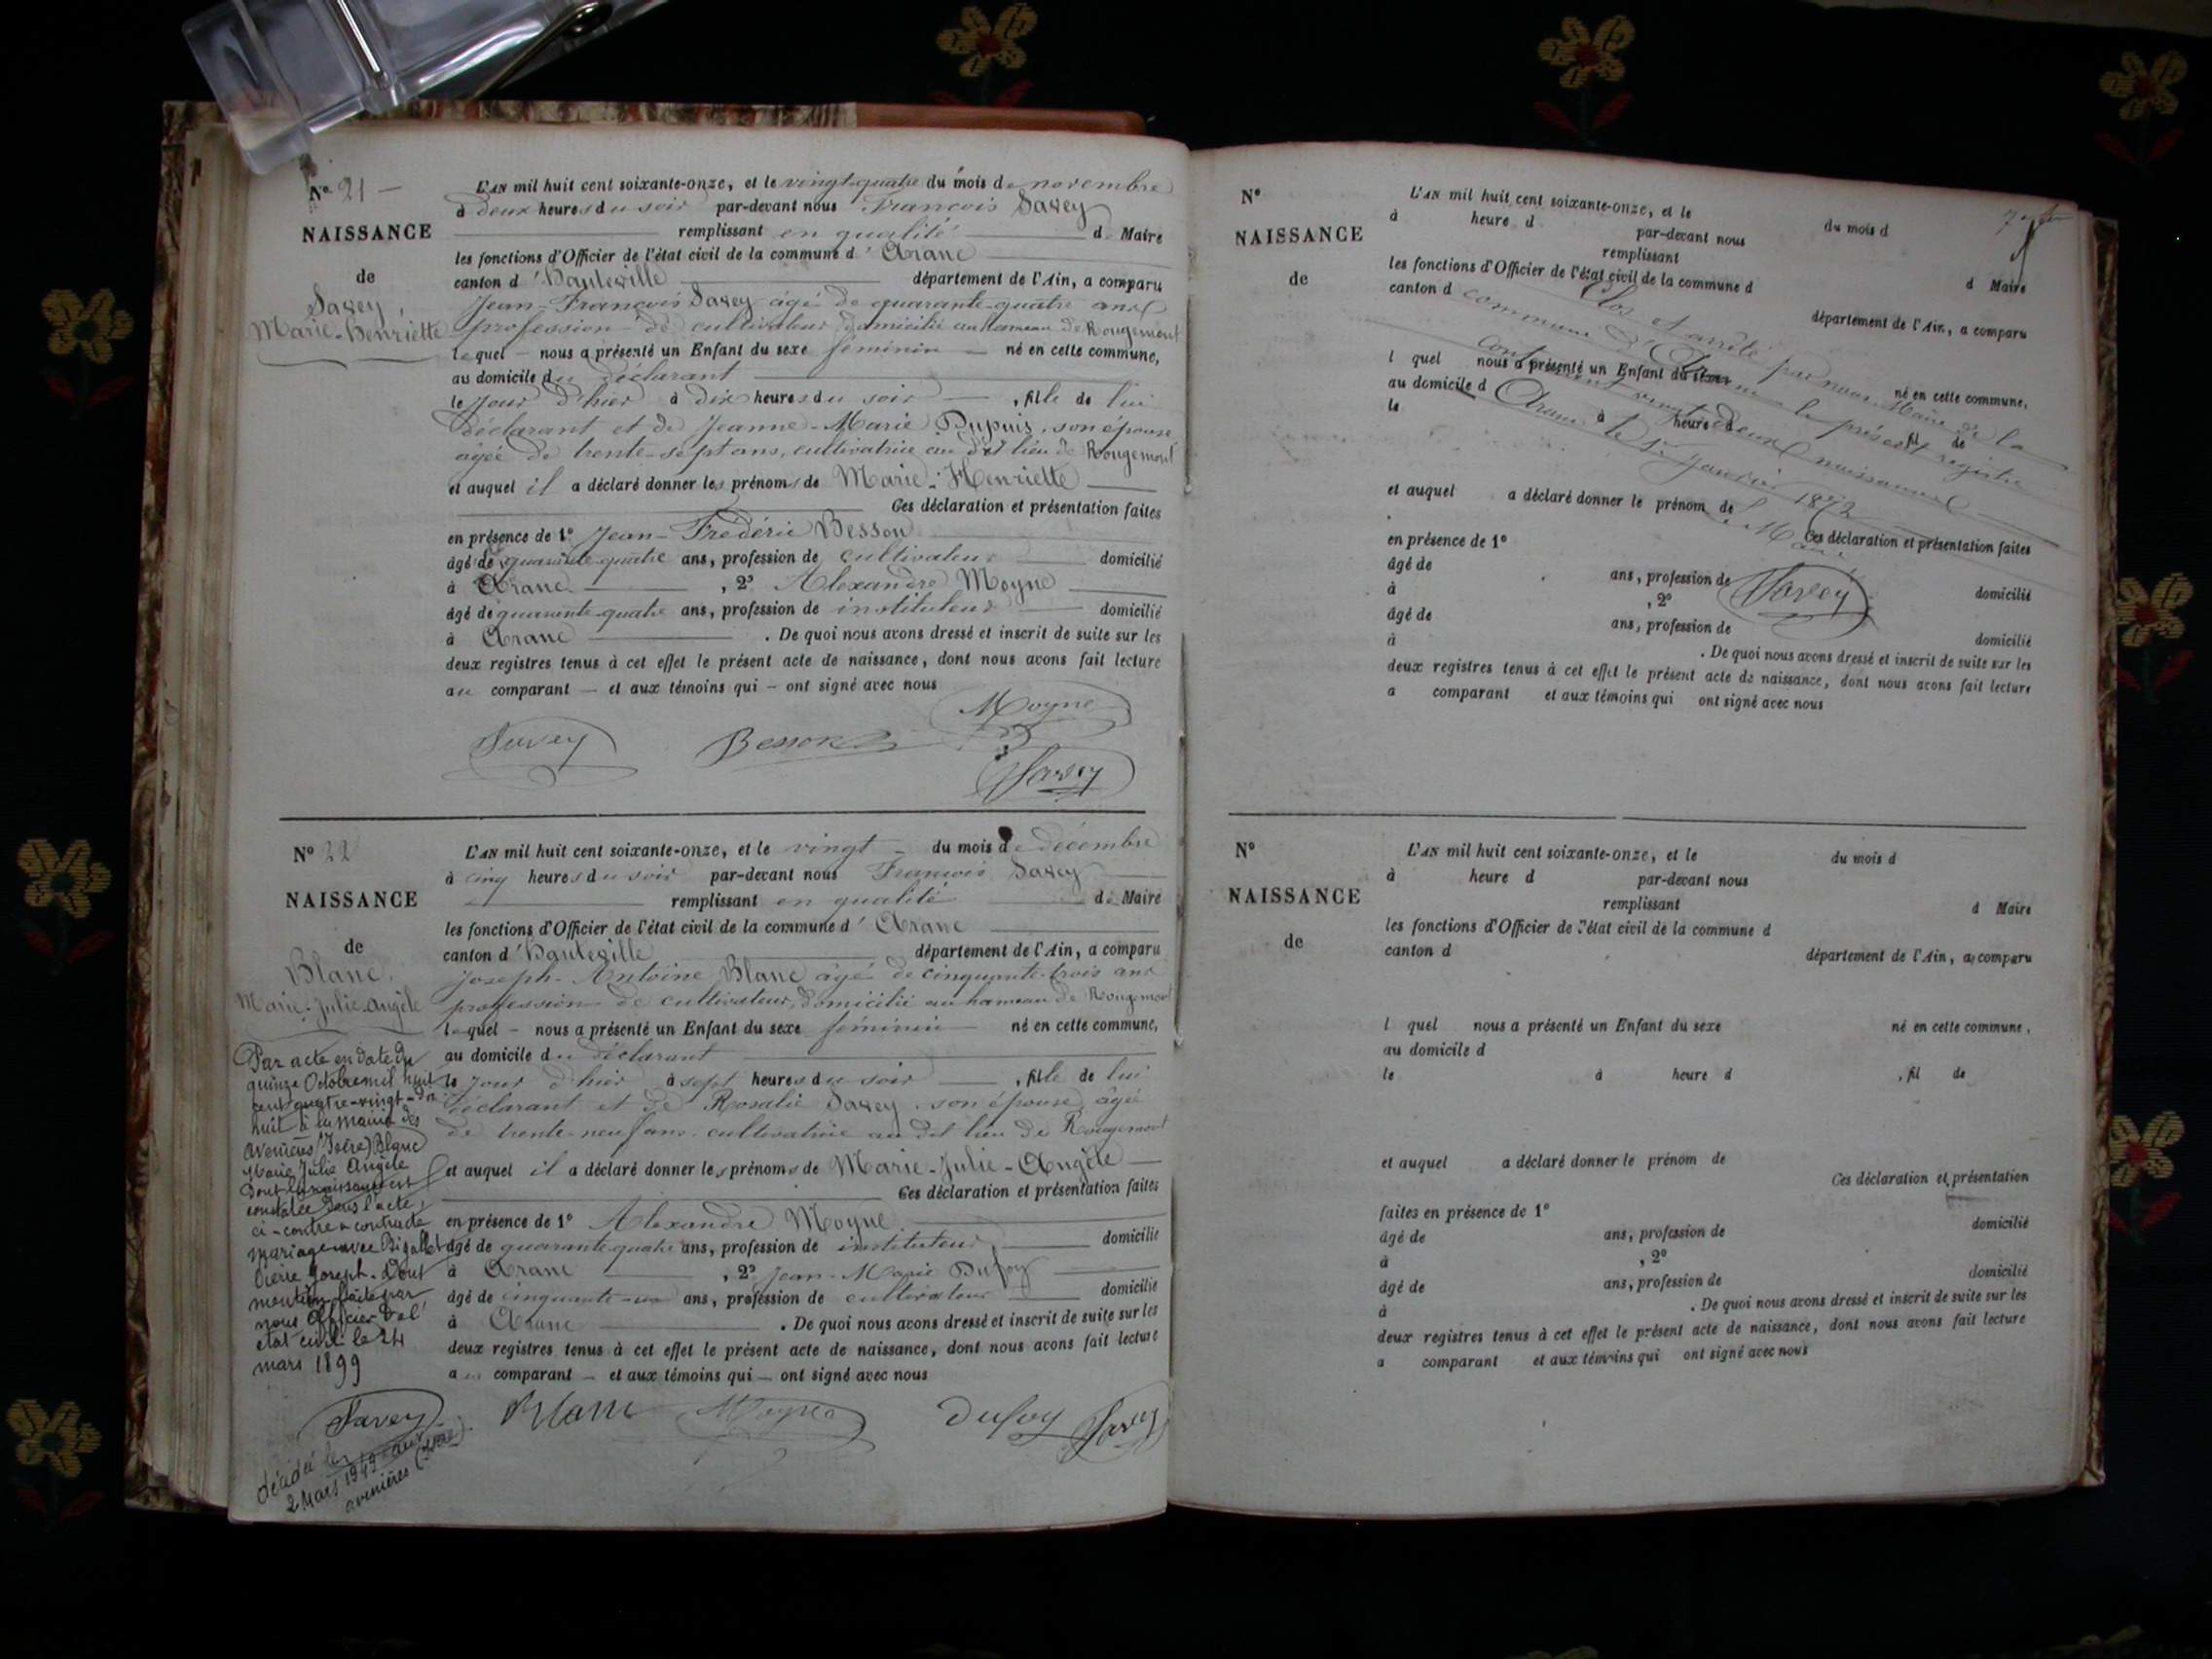 N° 21 —
NAISSANCE
de
Savey,
Marie-Henriette
L'AN mil huit cent soixante-onze, et le vingt-quatre du mois de novembre
à deux heures du soir par-devant nous François Savey
remplissant en qualité de Maire
les fonctions d'Officier de l'état civil de la commune d'Aranc
canton d'Hauteville département de l'Ain, a comparu
Jean-François Savey âgé de quarante-quatre ans
profession de cultivateur, domicilié au hameau de Rougemont
lequel — nous a présenté un Enfant du sexe féminin — né en cette commune,
au domicile du déclarant
le jour d'hier à dix heures du soir — , fille de lui
déclarant et de Jeanne-Marie Dupuis, son épouse
âgée de trente-sept ans, cultivatrice au dit lieu de Rougemont
et auquel il a déclaré donner les prénoms de Marie-Henriette
Ces déclaration et présentation faites
en présence de 1° Jean-Frédéric Besson
âgé de quarante-quatre ans, profession de cultivateur domicilié
à Aranc , 2° Alexandre Moyne
âgé de quarante-quatre ans, profession de instituteur domicilié
à Aranc . De quoi nous avons dressé et inscrit de suite sur les
deux registres tenus à cet effet le présent acte de naissance, dont nous avons fait lecture
au comparant — et aux témoins qui — ont signé avec nous
Moyne
Savey Besson
Savey
N° 22
NAISSANCE
de
Blanc,
Marie-Julie-Angèle
L'AN mil huit cent soixante-onze, et le vingt — du mois de décembre
à cinq heures du soir par-devant nous François Savey
remplissant en qualité de Maire
les fonctions d'Officier de l'état civil de la commune d'Aranc
canton d'Hauteville département de l'Ain, a comparu
Joseph-Antoine Blanc âgé de cinquante-trois ans
profession de cultivateur, domicilié au hameau de Rougemont
lequel — nous a présenté un Enfant du sexe féminin né en cette commune,
au domicile du déclarant
le jour d'hier à sept heures du soir — , fille de lui
déclarant et de Rosalie Savey, son épouse, âgée
de trente-neuf ans, cultivatrice au dit lieu de Rougemont
et auquel il a déclaré donner les prénoms de Marie-Julie-Angèle —
Ces déclaration et présentation faites
en présence de 1° Alexandre Moyne
âgé de quarante-quatre ans, profession de instituteur, domicilié
à Aranc , 2° Jean-Marie Dufoy
âgé de cinquante-un ans, profession de cultivateur domicilié
à Aranc . De quoi nous avons dressé et inscrit de suite sur les
deux registres tenus à cet effet le présent acte de naissance, dont nous avons fait lecture
au comparant — et aux témoins qui — ont signé avec nous
Blanc Moyne Dufoy Savey
Par acte en date du
quinze Octobre mil huit
cent quatre-vingt-dix
huit à la mairie des
Avenières (Isère) Blanc
Marie Julie Angèle
dont la naissance est
constatée dans l'acte
ci-contre a contracté
mariage avec
Pierre Joseph. Dont
mention faite par
nous Officier de l'
état civil le 24
mars 1899
Savey
décédée le
2 Mars 1949 aux
avenières (Isère)
N°
NAISSANCE
de
L'AN mil huit cent soixante-onze, et le du mois d
à heure d par-devant nous
remplissant d Maire
les fonctions d'Officier de l'état civil de la commune d
canton d département de l'Ain, a comparu
l quel nous a présenté un Enfant du sexe né en cette commune,
au domicile d
le à heure d , fil de
et auquel a déclaré donner le prénom de
Ces déclaration et présentation faites
en présence de 1°
âgé de ans, profession de domicilié
à , 2°
âgé de ans, profession de domicilié
à . De quoi nous avons dressé et inscrit de suite sur les
deux registres tenus à cet effet le présent acte de naissance, dont nous avons fait lecture
a comparant et aux témoins qui ont signé avec nous
Clos et arrêté par nous Maire de la
commune d'Aranc le présent registre
contenant vingt-deux naissances
Aranc le 1er Janvier 1872
Le Maire
Savey
N°
NAISSANCE
de
L'AN mil huit cent soixante-onze, et le du mois d
à heure d par-devant nous
remplissant d Maire
les fonctions d'Officier de l'état civil de la commune d
canton d département de l'Ain, a comparu
l quel nous a présenté un Enfant du sexe né en cette commune,
au domicile d
le à heure d , fil de
et auquel a déclaré donner le prénom de
Ces déclaration et présentation
faites en présence de 1°
âgé de ans, profession de domicilié
à , 2°
âgé de ans, profession de domicilié
à . De quoi nous avons dressé et inscrit de suite sur les
deux registres tenus à cet effet le présent acte de naissance, dont nous avons fait lecture
a comparant et aux témoins qui ont signé avec nous